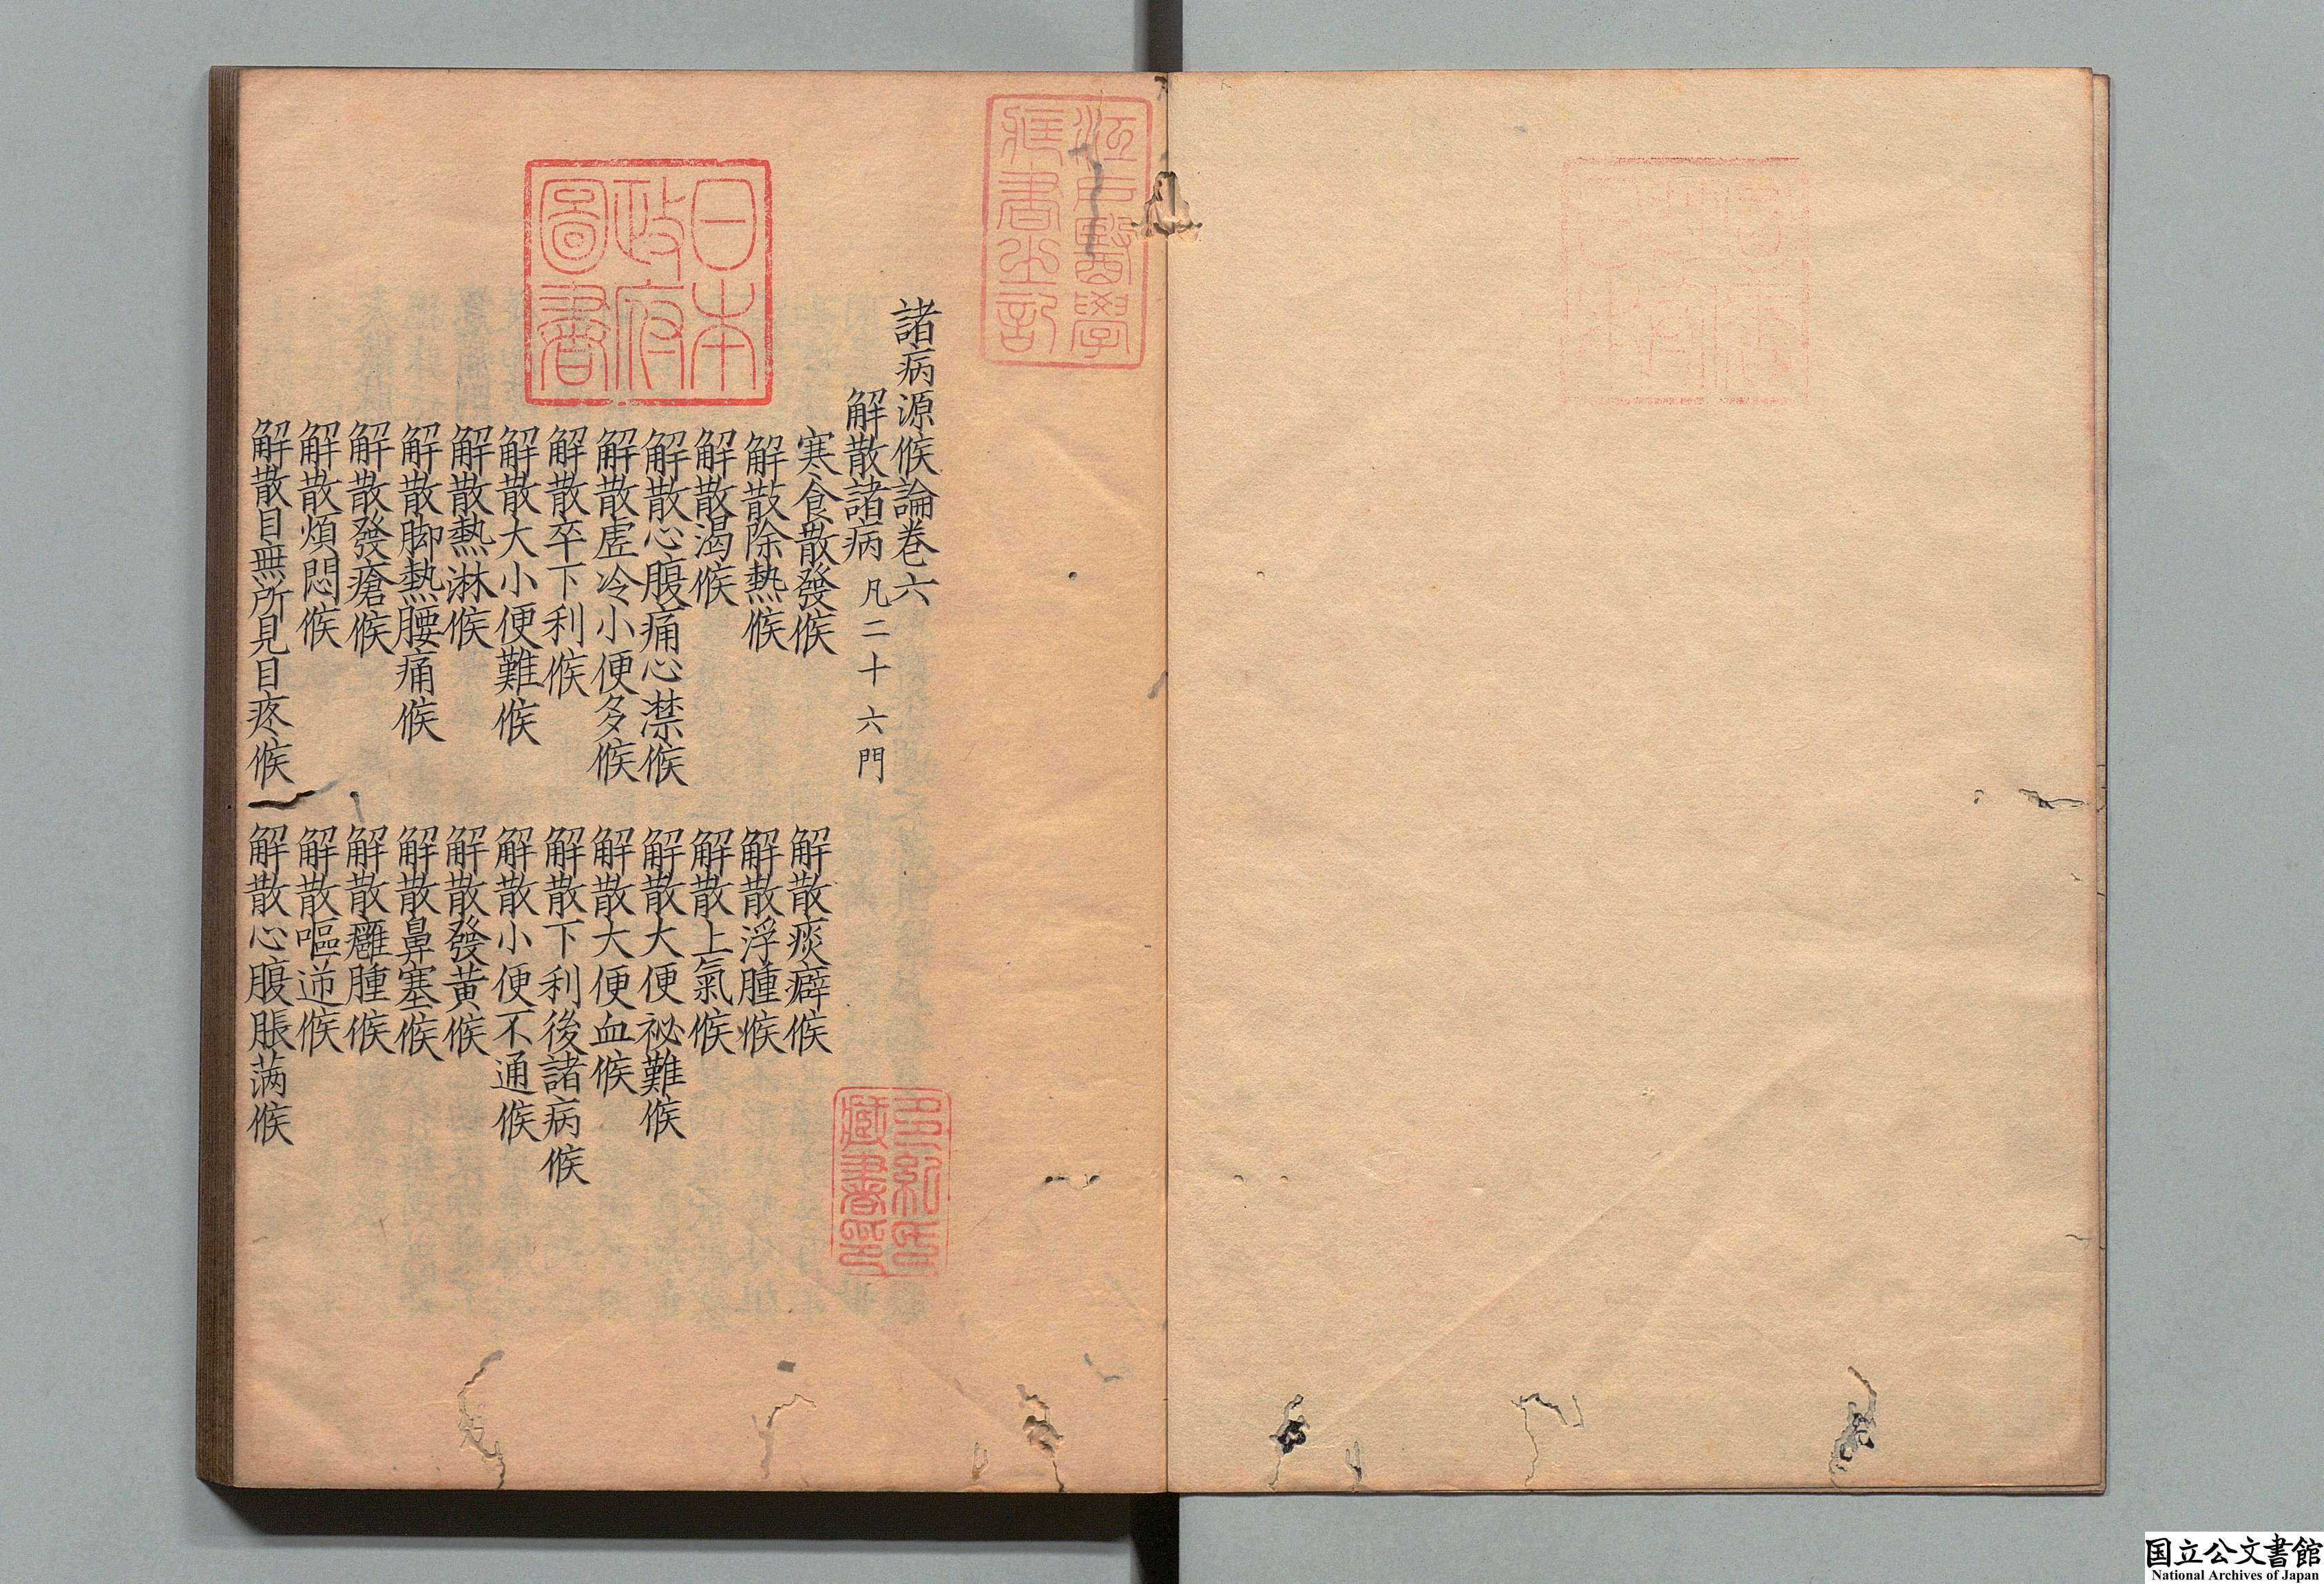 江戸醫學
藏書之記
日本
政府
圖書
諸病源候論卷六
解散諸病 凡二十六門
寒食散發候 解散痰癖候
解散除熱候 解散浮腫候
解散渴候 解散上氣候
解散心腹痛心澿候 解散大便祕難候
解散虛冷小便多候 解散大便血候
解散卒下利候 解散下利後諸病候
解散大小便難候 解散小便不通候
解散熱淋候 解散發黃候
解散脚熱腰痛候 解散鼻塞候
解散發瘡候 解散癰腫候
解散煩悶候 解散嘔逆候
解散目無所見目疼候 解散心腹脹满候
多紀氏
藏書印
国立公文書館
National Archives of Japan